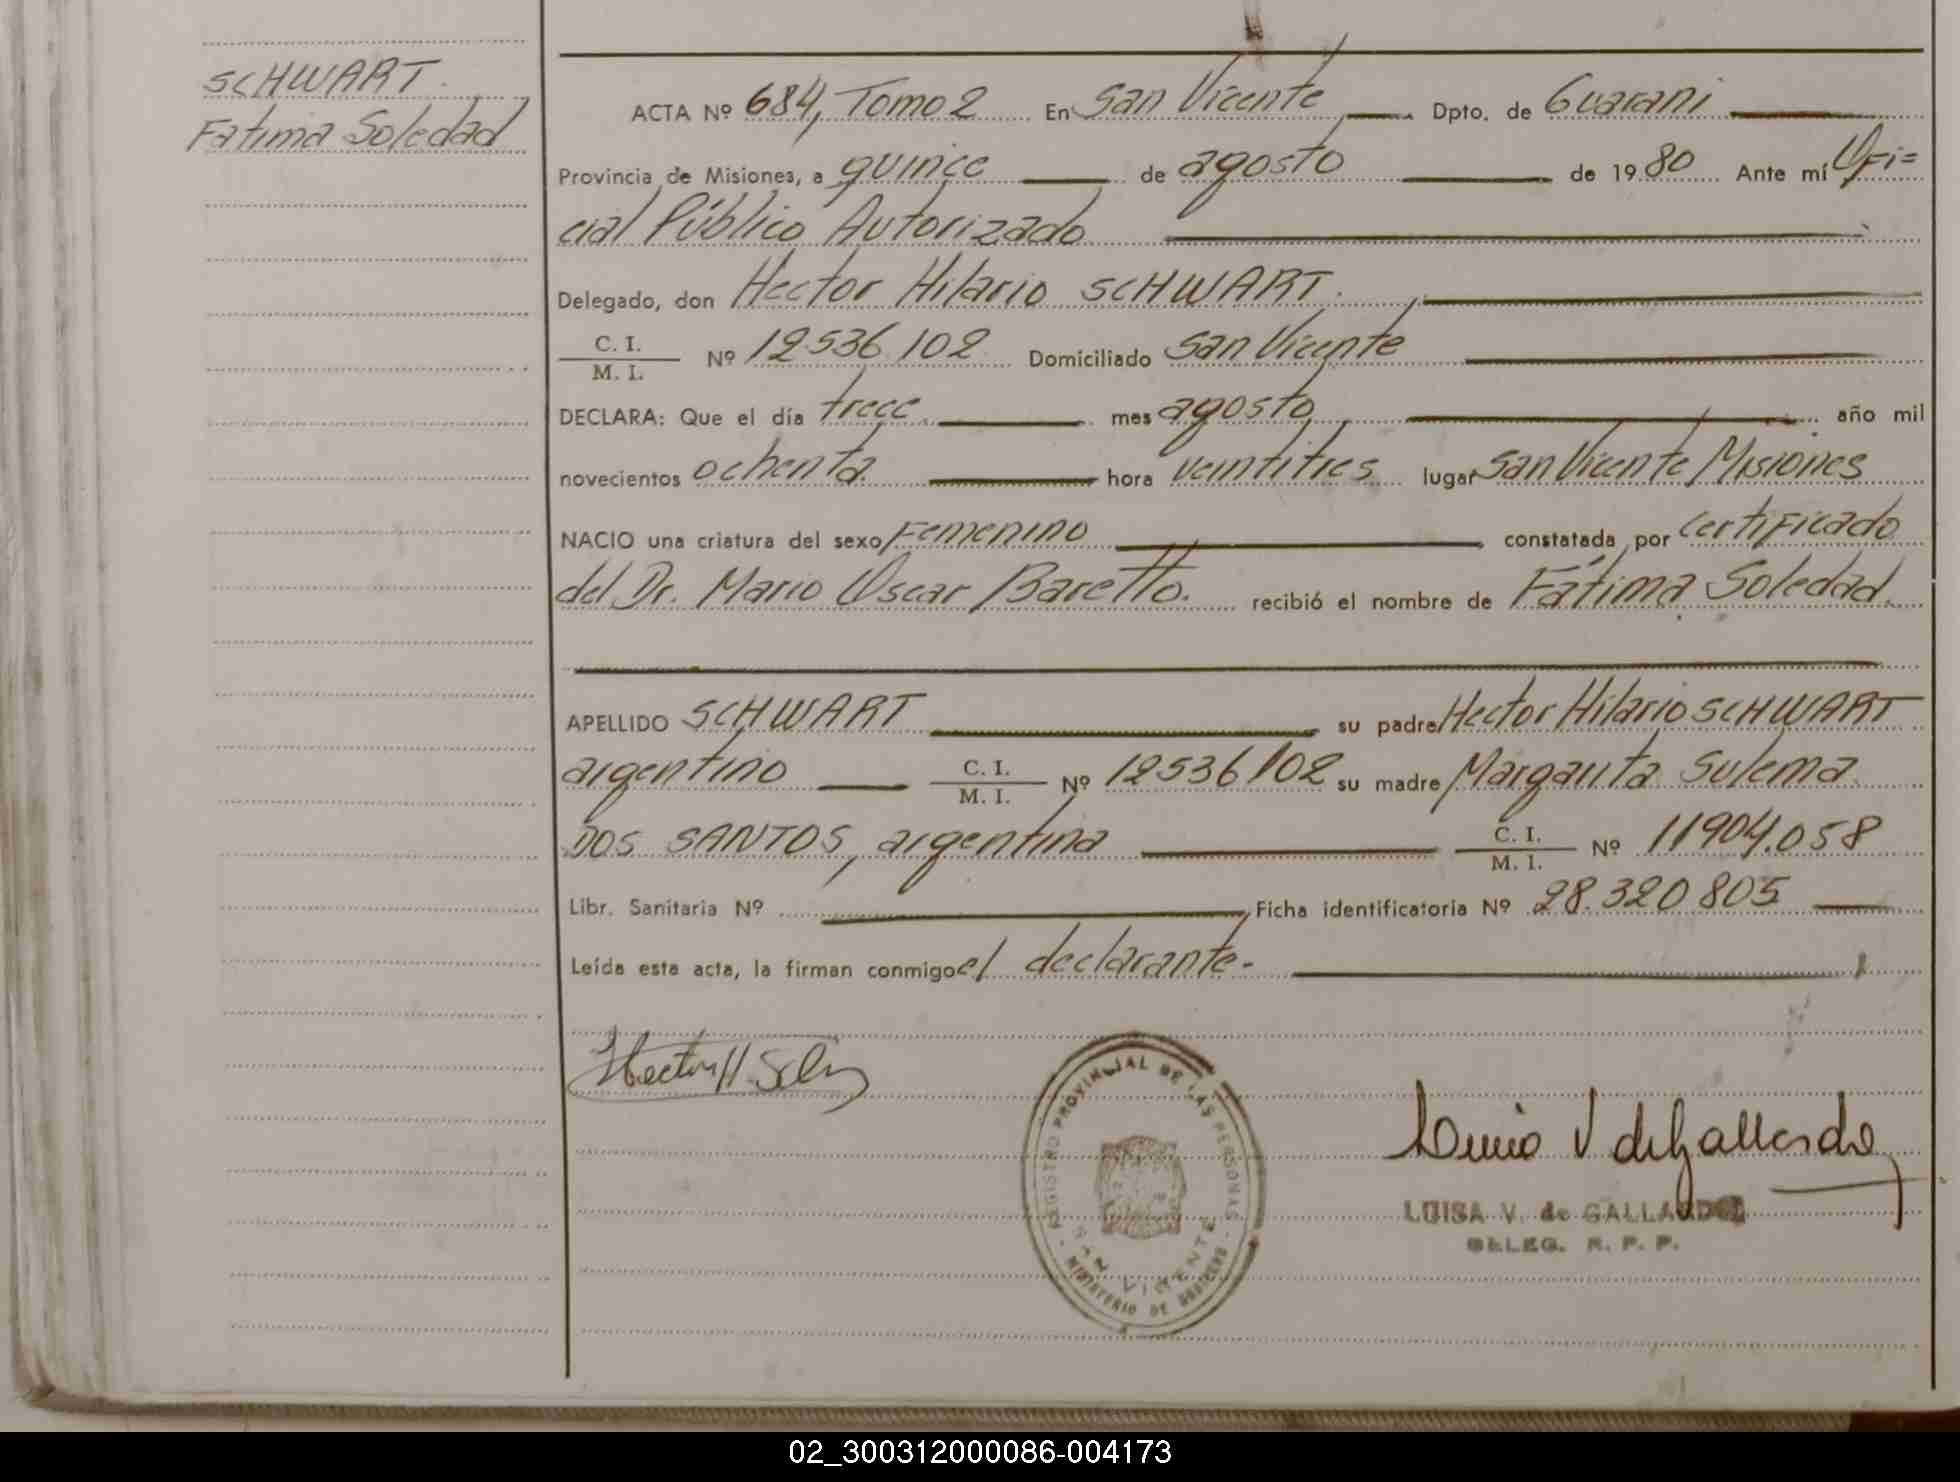 SCHWART.
Fatima Soledad
ACTA Nº 684, Tomo 2 En San Vicente Dpto. de Guarani
Provincia de Misiones, a quince de agosto de 1980 Ante mí Ofi=
cial Público Autorizado
Delegado, don Hector Hilario SCHWART.
C. I.
M. I. Nº 12536.102 Domiciliado San Vicente
DECLARA: Que el día trece mes agosto año mil
novecientos ochenta hora veintitres lugar San Vicente, Misiones
NACIO una criatura del sexo Femenino constatada por certificado
del Dr. Mario Oscar Baretto. recibió el nombre de Fátima Soledad.
APELLIDO SCHWART su padre Hector Hilario SCHWART
argentino C. I.
M. I. Nº 12536102 su madre Margarita Sulema
DOS SANTOS, argentina C. I.
M. I. Nº 11904.058
Libr. Sanitaria Nº Ficha identificatoria Nº 28.320.805
Leída esta acta, la firman conmigo el declarante.-
Hector H.
REGISTRO PROVINCIAL DE LAS PERSONAS
SAN VICENTE
MINISTERIO DE GOBIERNO
V de Gallardo
LUISA V. de GALLARDO
DELEG. R. P. P.
02_300312000086-004173